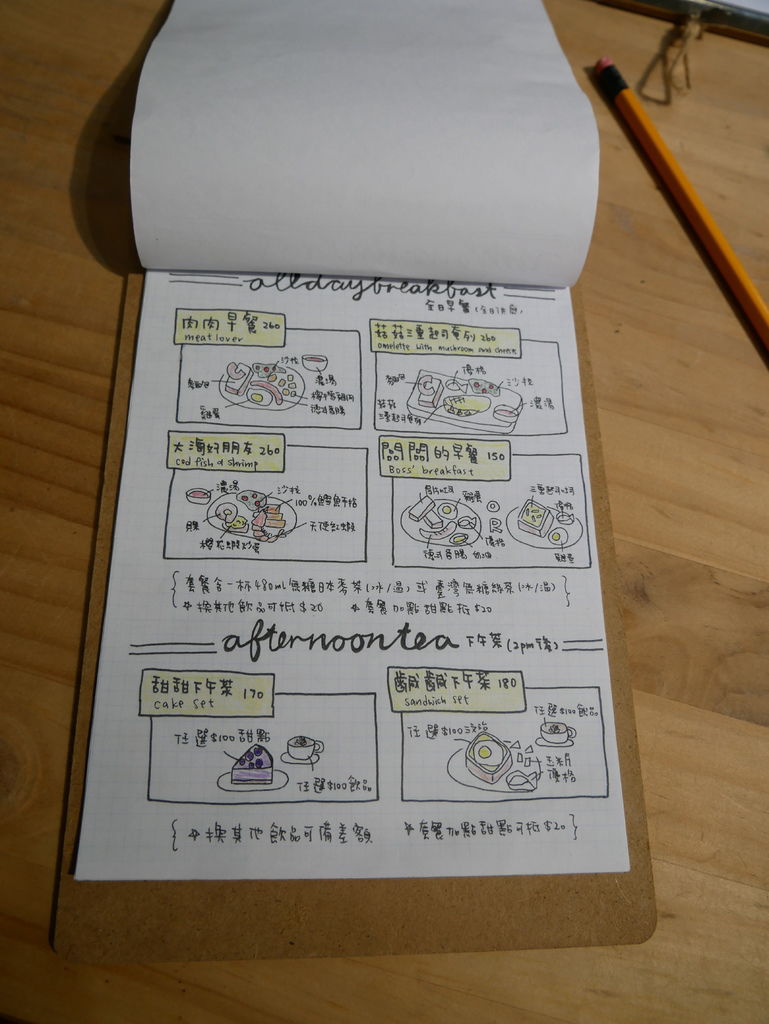 alldaybreakfast
全日早餐(全日供應)
肉肉早餐 260
meat lover
沙拉
濃湯
麵包
德式香腸
雞蛋
菇菇三重起司奄列 260
omelette with mushroom and cheese
優格
麵包
沙拉
濃湯
菇菇
三重起司奄列
大海好朋友 260
cod fish & shrimp
濃湯
沙拉
100%鱈魚干格
天使紅蝦
櫻花蝦炒蛋
闆闆的早餐 150
Boss' breakfast
雞蛋
OR
三重起司吐司
優格
優格
德式香腸 奶油
雞蛋
{ 套餐含一杯480ml無糖日本麥茶(冰/溫) 或 臺灣無糖綠茶(冰/溫) }
☆換其他飲品可抵$20 ☆套餐加點甜點抵$20
afternoontea 下午茶(2pm後)
甜甜下午茶 170
cake set
任選$100甜點
任選$100飲品
鹹鹹下午茶 180
sandwich set
任選$100飲品
任選$100三明治
玉米片
優格
{ ☆換其他飲品可補差額 ☆套餐加點甜點可抵$20 }